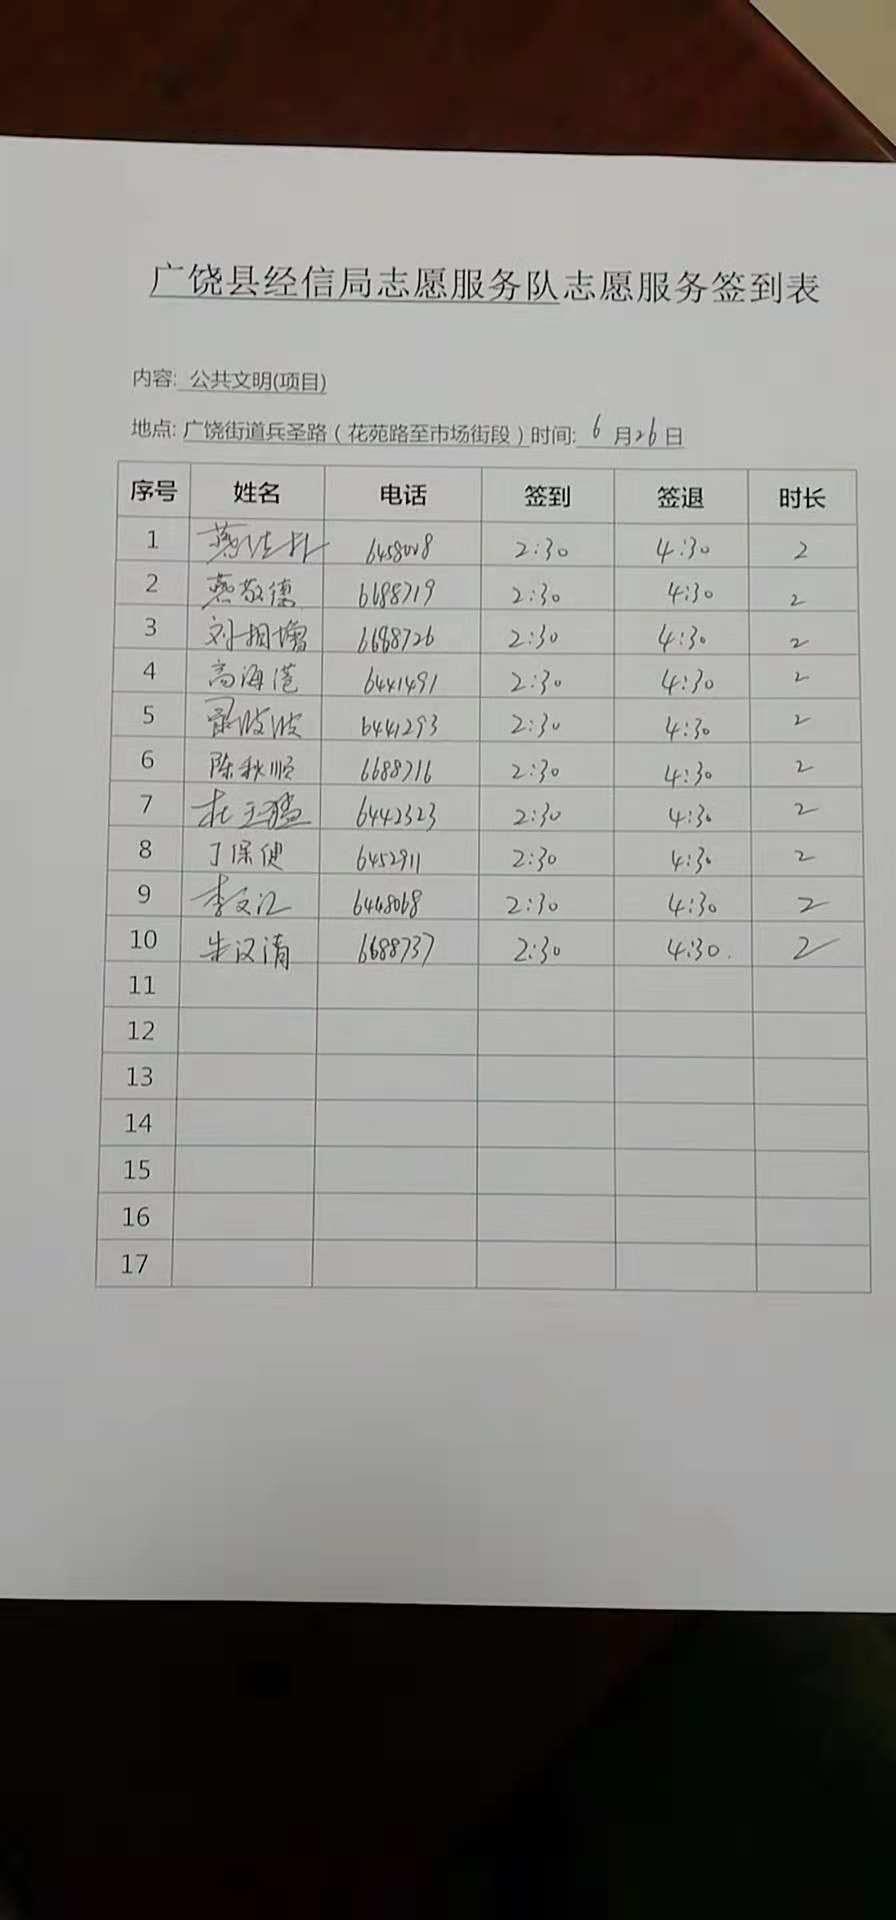 广饶县经信局志愿服务队志愿服务签到表
内容: 公共文明(项目)
地点: 广饶街道兵圣路（花苑路至市场街段）时间: 6月26日
序号 姓名 电话 签到 签退 时长
1 6458008 2:30 4:30 2
2 燕敬德 6688719 2:30 4:30 2
3 6688726 2:30 4:30 2
4 高海港 6441491 2:30 4:30 2
5 6441293 2:30 4:30 2
6 陈秋顺 6688716 2:30 4:30 2
7 6442323 2:30 4:30 2
8 丁保健 6452911 2:30 4:30 2
9 李文江 6448068 2:30 4:30 2
10 朱汉清 6688737 2:30 4:30. 2
11
12
13
14
15
16
17